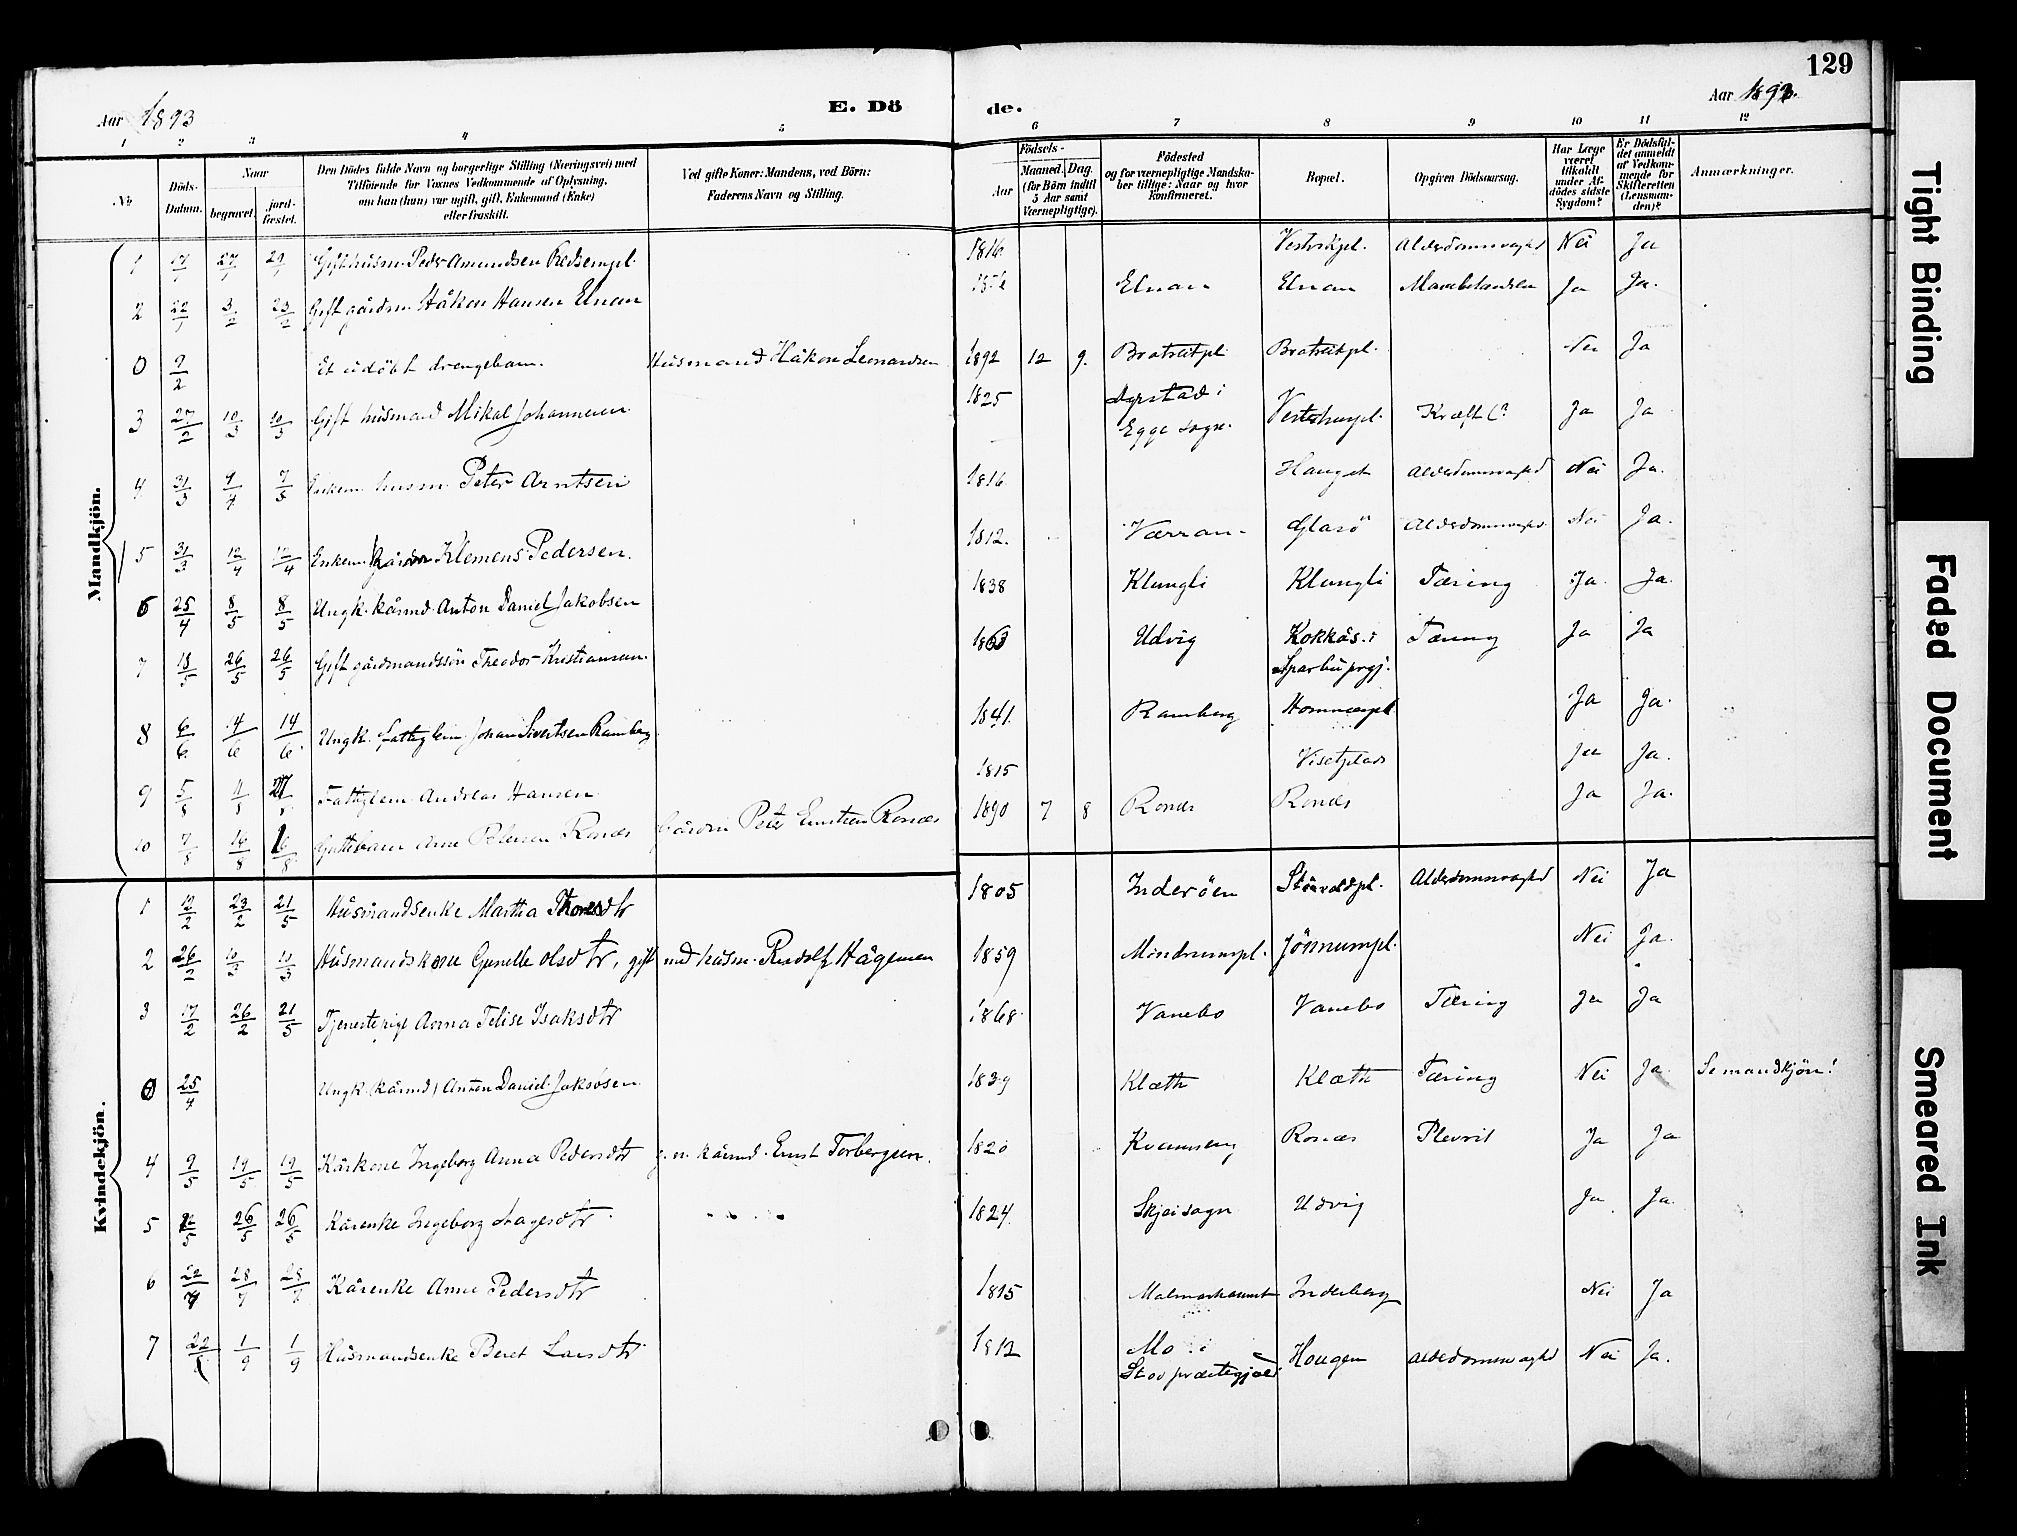 129
Aar 1893
E. Dö
de.
Aar 1893.
1 2 3 4 5 6 7 8 9 10 11 12
No
Döds-Datum.
Naar
begravet.
jord-fæstet.
Den Dödes fulde Navn og borgerlige Stilling (Næringsvei) med
Tilföiende for Voxnes Vedkommende af Oplysning,
om han (hun) var ugift, gift, Enkemand (Enke)
eller fraskilt.
Ved gifte Koner: Mandens, ved Börn:
Faderens Navn og Stilling.
Födsels-
Aar
Maaned.
Dag.
(for Börn indtil
5 Aar samt
Værnepligtige).
Födested
og for værnepligtige Mandska-
ber tillige: Naar og hvor
konfirmeret.
Bopæl.
Opgiven Dödsaarsag.
Har Læge
været
tilkaldt
under Af-
dödes sidste
Sygdom?
Er Dödsfal-
det anmeldt
af Vedkom-
mende for
Skifteretten
(Lensman-
den)?
Anmærkninger.
Mandkjön.
1 17/1 27/1 Gift husm. Peder Amundsen 1816 Alderdomssvaghd Nei Ja
2 22/1 3/2 23/2 Gift gårdm. Håkon Hansen Elnan Elnan Elnan Ja Ja.
0 9/2 Et udöbt drengebarn. Husmand Håkon Leonardsen 1892 12 9. Bratreitpl. Bratreitpl. Nei Ja
3 27/2 10/3 10/3 Gift husmand Mikal Johannesen 1825 i
Egge sogn. Kræft (? Ja Ja
4 31/3 9/4 7/5 Enkem. husm. Peter Arntsen 1816 Alderdomssvaghd Nei Ja.
5 31/3 12/4 12/4 Enkem. Klemens Pedersen. 1812. Værran Glasö Alderdomssvaghd Nei Ja.
6 25/4 8/5 8/5 Ungk. kårmd. Anton Daniel Jakobsen 1838 Klungli Klungli Tæring Ja. Ja.
7 18/5 26/5 26/5 Gift gårdmandssön Theodor Kristiansen. 1863 Udvig Kokkås. i Tæring Ja Ja
Sparbu prgj.
8 6/6 14/6 14/6. Ungk. Fattiglem. Johan Sivertsen Ramberg. 1841. Ramberg Ja Ja.
9 5/8 Fattiglem Andreas Hansen. 1815 Ja Ja.
10 7/8 16/8 16/8 Guttebarn Arne Petersen Ronæs Gårdm. Peter Ernstsen Ronæs 1890 7 8 Ronæs Ronæs Ja Ja.
Kvindekjön.
1 12/2 23/2 21/5 Husmandsenke Martha Thoresdtr 1805 Inderöen Alderdomssvaghd Nei Ja
2 26/2 10/3 10/3 Husmandskone Gunelle Olsdtr, gift med husm. Rudolf Hågensen 1859 Mindrumspl. Jönnumpl. Nei Ja.
3 17/2 26/2 21/5 Tjenestepige Anna Felise Isaksdtr 1868. Vanebo Vanebo Tæring Ja Ja
0 25/4 Ungk. (kårmd) Anton Daniel Jakobsen. 1839 Klæth Klæth Tæring Nei Ja. Se mandkjön!
4 9/5 19/5 19/5 Kårkone Ingeborg Anna Pedersdtr g. m. kårmd. Ernst Torbergsen. 1820 Kvamseng Ronæs Plevrit Ja Ja
5 26/5 26/5 Kårenke Ingeborg 1824. Skjeisogn Udvig Ja Ja.
6 28/7 28/7 Kårenke Anne Pedersdtr 1815 Inderberg Nei Ja
7 1/9 1/9 Husmandsenke Beret Larsdtr 1812 Mo i
Stod præstegjæld Hougen Alderdomssvaghd Nei Ja.
Tight Binding
Faded Document
Smeared Ink